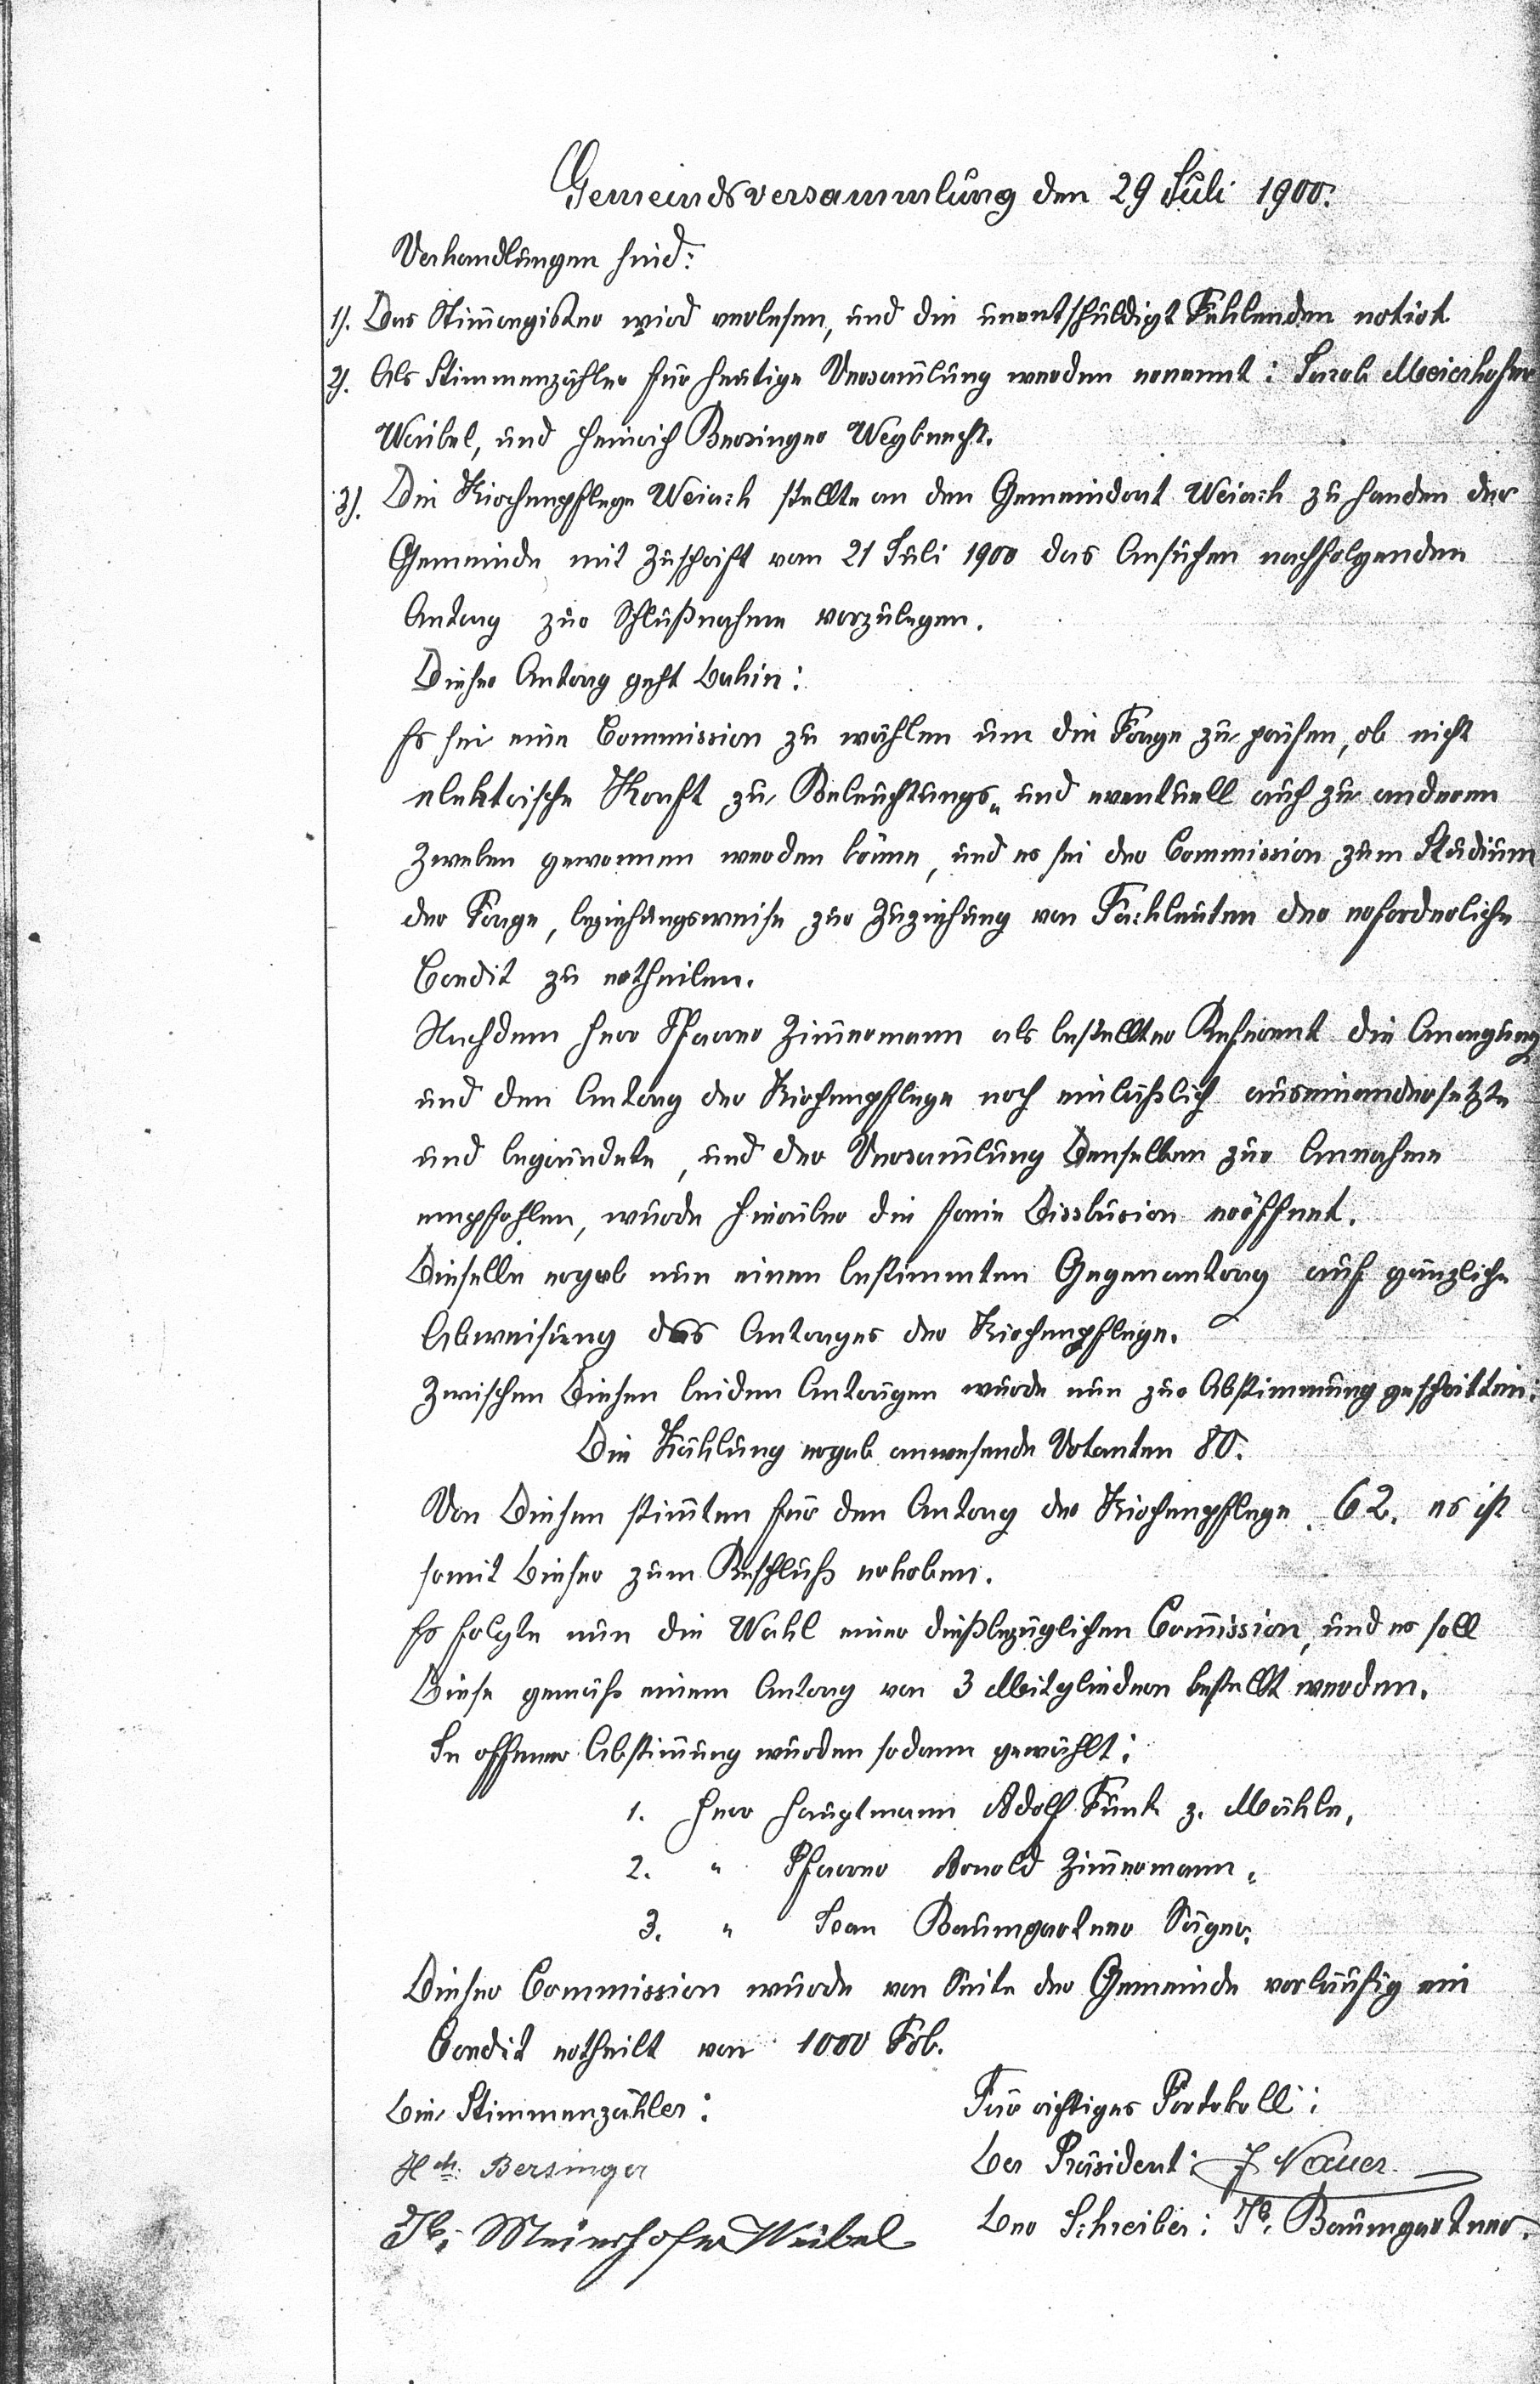 Gemeindsversammlung den 29 Juli 1900.
Verhandlungen sind:
1). Das Stimregister wird verlesen, und die unentschuldigt Fehlenden notirt
2). Als Stimmenzähler für heutige Versamlung werden ernennt: Jacob Meierhofer
Weibel, und Heinrich Bersinger Wegknecht.
3). Die Kirchenpflege Weiach stellte an den Gemeindrat Weiach zu handen der
Gemeinde mit Zuschrift vom 21 Juli 1900 das Ansuchen nachfolgenden
Antrag zur Schlußnahme vorzulegen.
Dieser Antrag geht dahin:
Es sei eine Commission zu wählen um die Frage zu prüfen, ob nicht
elektrische Kraft zu Beleuchtungs- und eventuell auch zu anderen
Zweken gewonnen werden könne, und es sei der Commission zum Studium
der Frage, beziehungsweise zur Zuziehung von Fachleuten der erforderliche
Credit zu ertheilen.
Nachdem Herr Pfarrer Zimermann als bestellter Referent die Anregung
und den Antrag der Kirchenpflege noch einläßlich auseinandersetzte
und begründete, und der Versamlung Denselben zur Annahme
empfohlen, wurde hierüber die freie Disskusion eröffnet.
Dieselbe ergab nun einen bestimmten Gegenantrag auf gänzliche
Abweisung des Antrages der Kirchenpflege.
Zwischen Diesen beiden Anträgen wurde nun zur Abstimmung geschritten:
Die Zählung ergab anwesende Votanten 80.
Von Diesen stimten für den Antrag der Kirchenpflege 62. es ist
somit Dieser zum Beschluß erhoben.
Es folgte nun die Wahl einer dießbezüglichen Comission, und es soll
Diese gemäß einem Antrag von 3 Mitgliedern bestellt werden.
In offener Abstimung wurden sodann gewählt:
1. Herr Hauptmann Adolf Funk z. Mühle,
2. " Pfarrer Arnold Zimermann,
3. " Jean Baumgartner Säger.
Dieser Commission wurde von Seite der Gemeinde vorläufig ein
Credit ertheilt von 1000 Frk.
Die Stimmenzähler:
Hch. Bersinger
Jb. Meierhofer Weibel
Für richtiges Protokoll:
Der Präsident: J Nauer
Der Schreiber: Jb. Baumgartner.